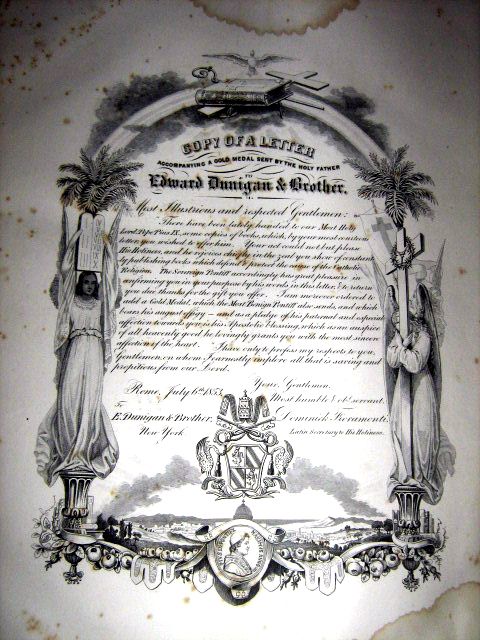 COPY OF A LETTER
ACCOMPANYING A GOLD MEDAL SENT BY THE HOLY FATHER
TO
Edward Dunigan & Brother.
Most Illustrious and respected Gentlemen:
There have been lately handed to our Most Holy
Lord, Pope Pius IX, some copies of books, which, by your most courteous
letter, you wished to offer him. Your act could not but please
His Holiness, and he rejoices chiefly in the zeal you show of constantly
by publishing books which defend & protect the cause of the Catholic
Religion. The Sovereign Pontiff accordingly has great pleasure in
confirming you in your purpose by his words in this letter, & to return
you also thanks for the gift you offer. I am moreover ordered to
add a Gold Medal, which the Most Benign Pontiff also sends, and which
bears his august effigy — and as a pledge of his paternal and especial
affection towards you is his Apostolic blessing, which as an auspice
of all heavenly good he lovingly grants you with the most sincere
affection of the heart. I have only to profess my respects to you,
Gentlemen, on whom I earnestly implore all that is saving and
propitious from our Lord.
Rome, July 6th 1853. Your, Gentlemen,
To Most humble & obt servant,
E. Dunigan & Brother, Dominick Fioramonti,
New York. Latin Secretary to His Holiness.